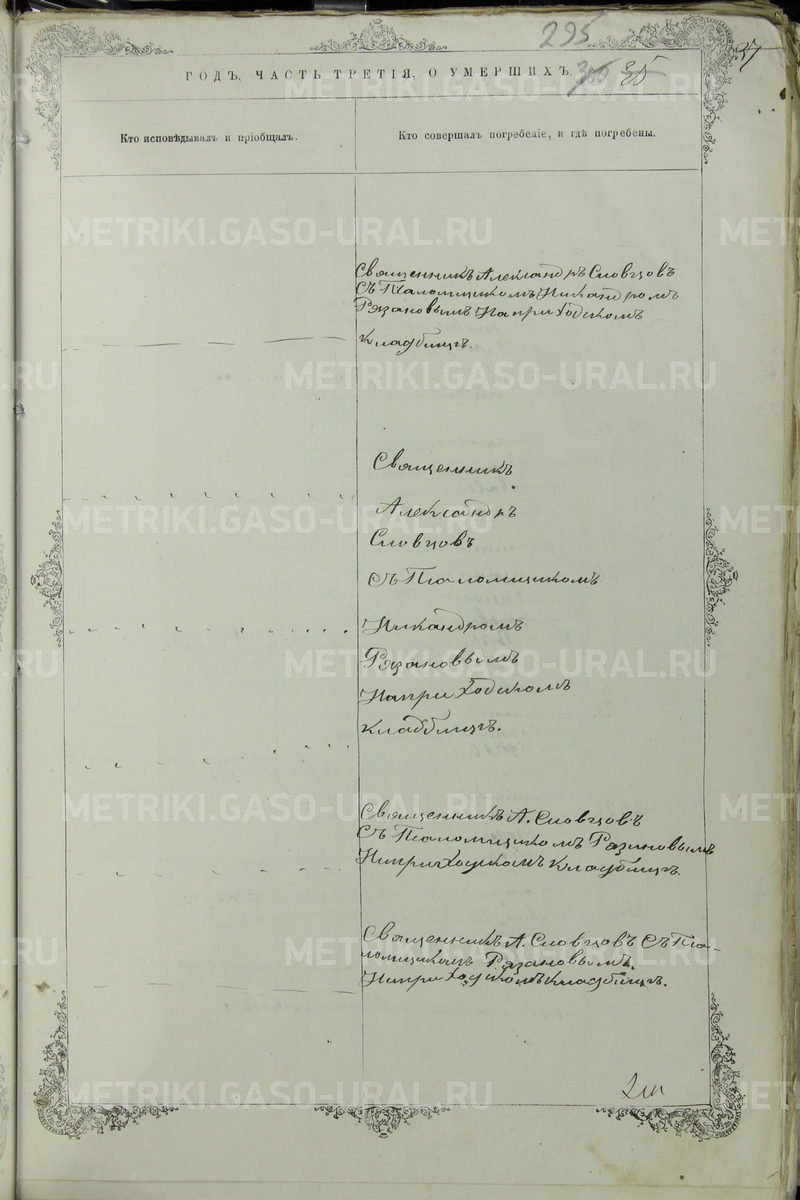 295
37
ГОДЪ, ЧАСТЬ ТРЕТІЯ, О УМЕРШИХЪ.
35
Кто исповѣдывалъ и пріобщалъ.
Кто совершалъ погребеніе, и гдѣ погребены.
Священникъ Александръ Словцовъ
Съ Псаломщикомъ Никандромъ
Рязановымъ На приходскомъ
Кладбищѣ.
Священникъ
Александръ
Словцовъ
Съ Псаломщикомъ
Никандромъ
Рязановымъ
На приходскомъ
кладбищѣ.
Священникъ А. Словцовъ
Съ Псаломщикомъ Рязановымъ
На приходскомъ Кладбищѣ.
Священникъ А. Словцовъ Съ Пса-
ломщикомъ Рязановымъ.
На приходскомъ кладбищѣ.
METRIKI.GASO-URAL.RU